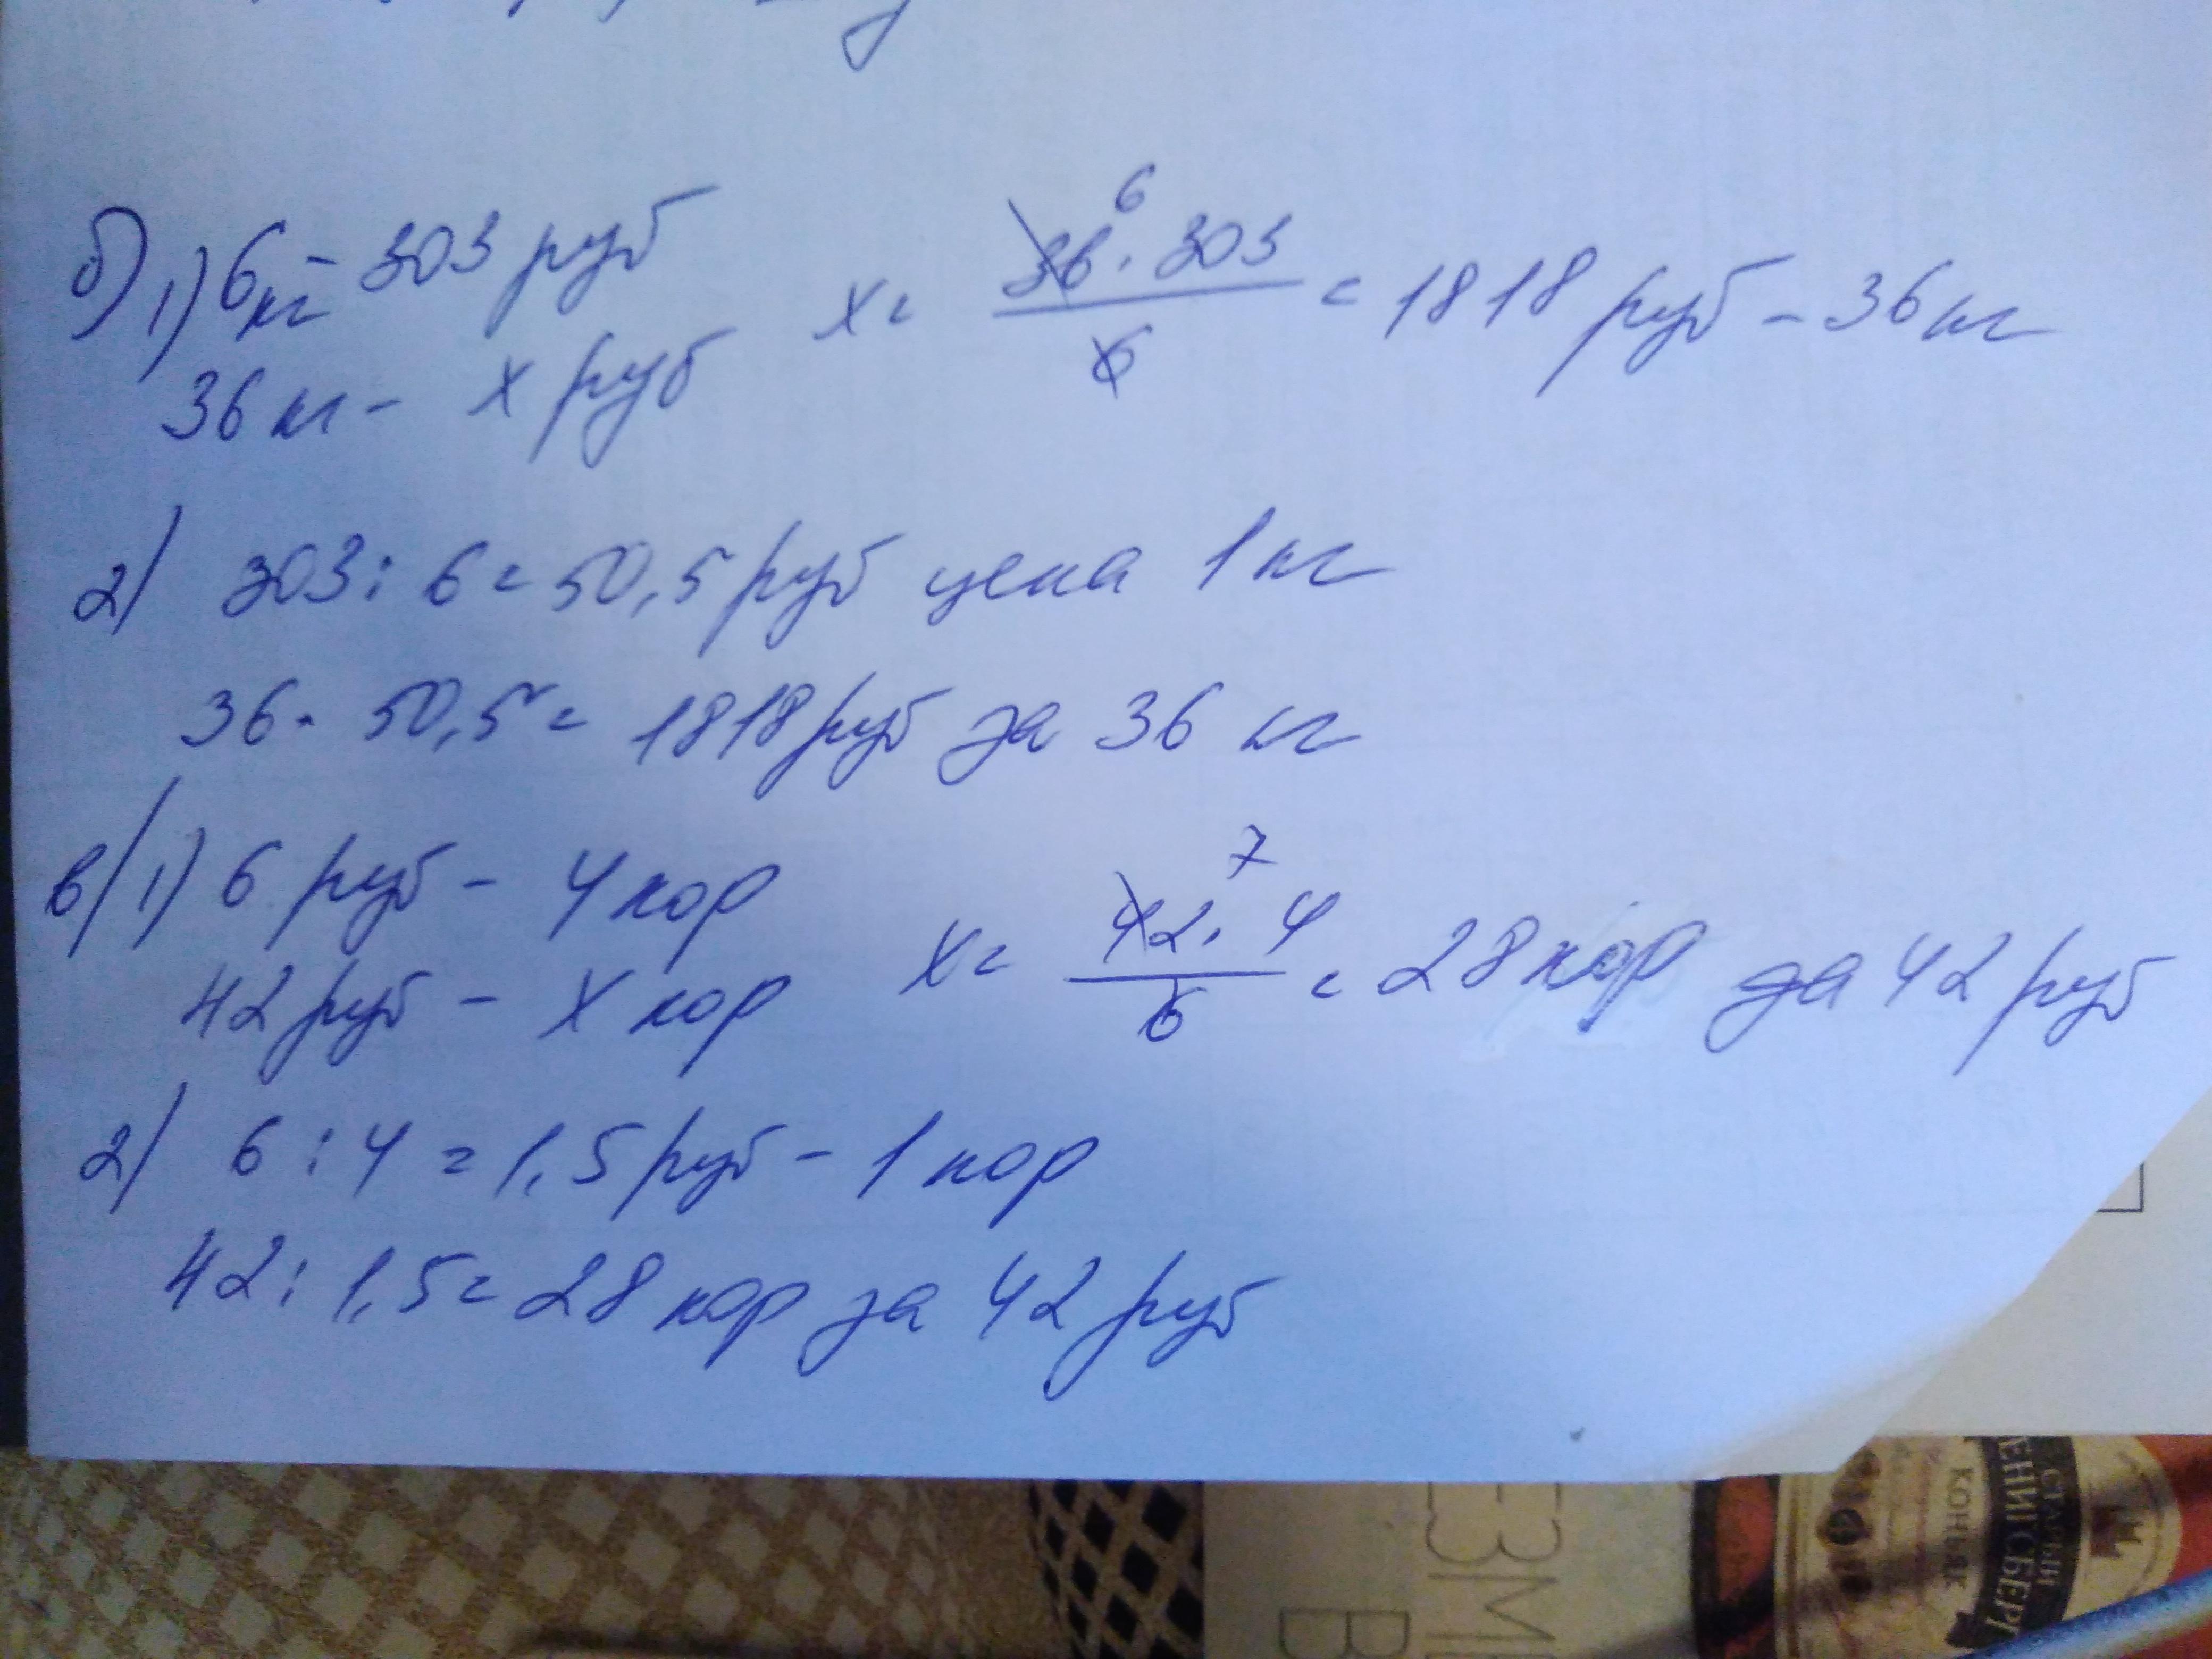 б) 1) 6 кг - 303 руб
36 кг - x руб
x = 36 · 303 / 6 = 1818 руб - 36 кг
6
2) 303 : 6 = 50,5 руб цена 1 кг
36 · 50,5 = 1818 руб за 36 кг
в) 1) 6 руб - 4 кор
42 руб - x кор
x = 42 · 4 / 6 = 28 кор за 42 руб
7
2) 6 : 4 = 1,5 руб - 1 кор
42 : 1,5 = 28 кор за 42 руб
СТАРЫЙ
КОНЬЯК
В